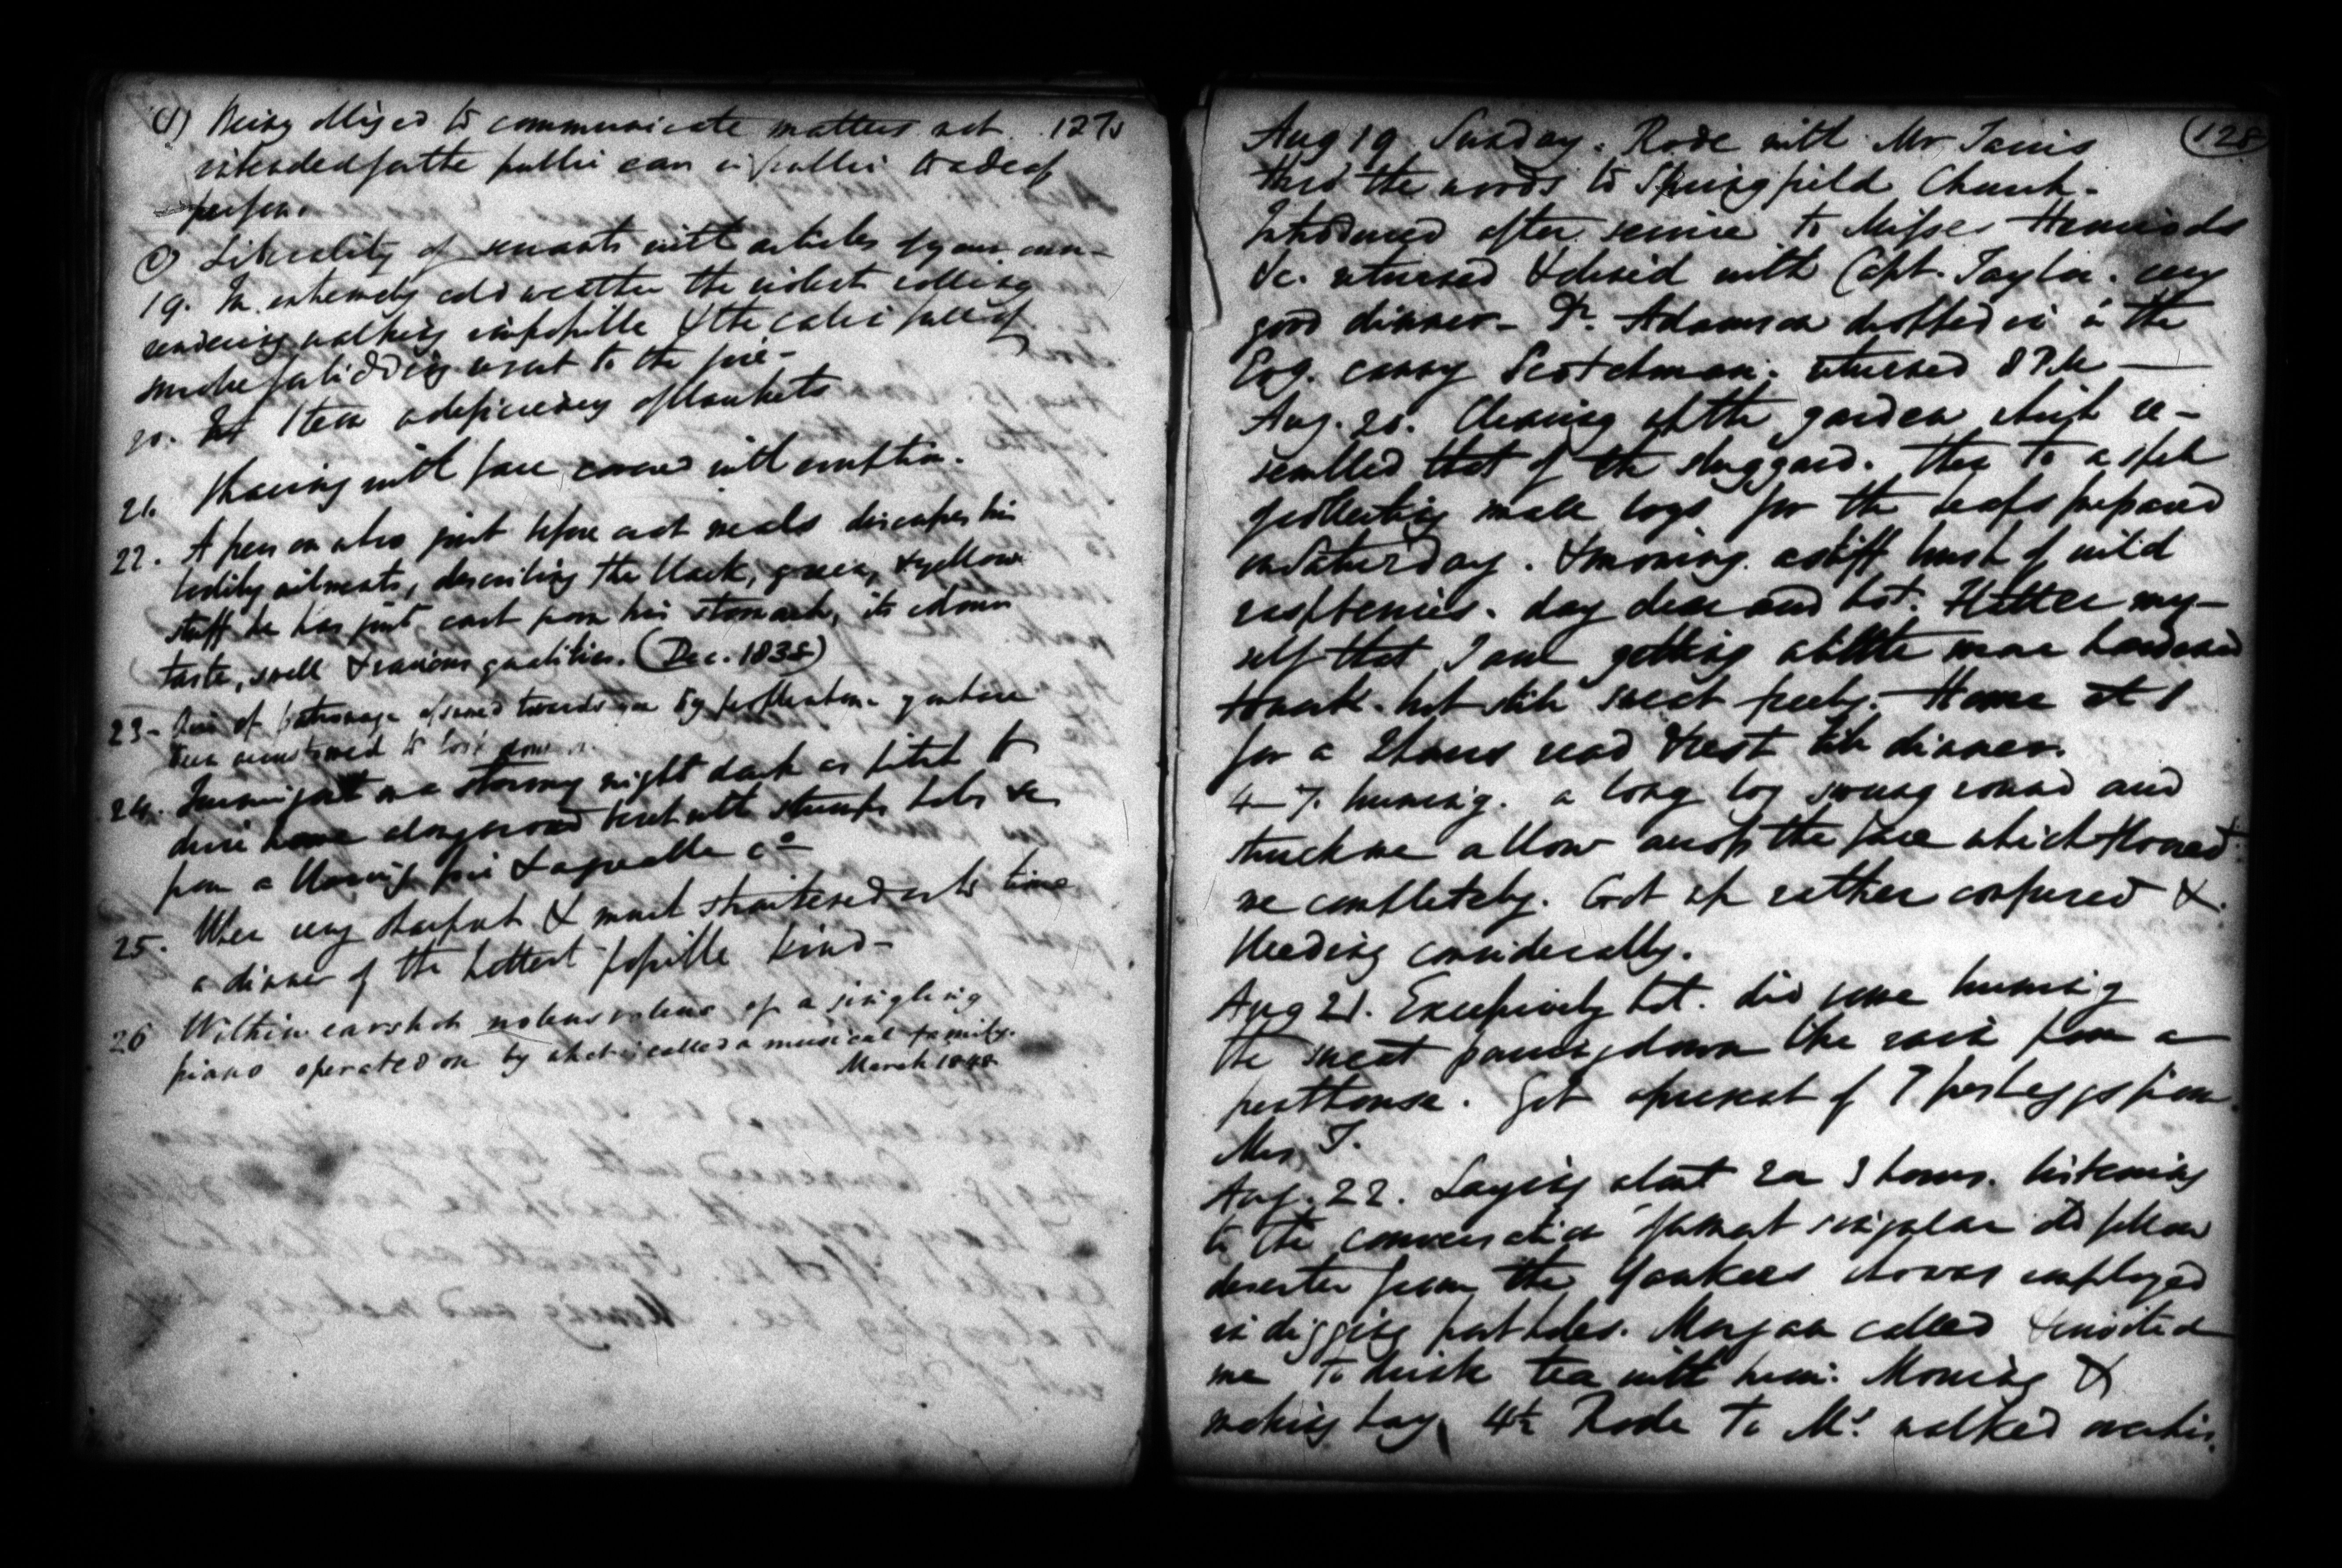 (d) Being obliged to communicate matters not 127b
intended for the public ear in public trade of
person.
(e) Liberality of servants with articles of your own—
19. In extremely cold weather the violent rolling
rendering walking impossible & the cabin full of
smoke forbidding resort to the fire—
20. Item a deficiency of blankets
21. Shaving with face covered with eruption.
22. A person who just before and meals discusses his
bodily ailments, describing the black, green, & yellow
stuff he has just cast from his stomach, its odour
taste, smell & various qualities. (Dec. 1838)
23— Airs of patronage assumed towards you by you have
been accustomed to look down on.
24. Turning out on a stormy night dark as pitch to
drive home along a road beset with stumps holes &c
from a blazing fire & agreeable co
25. When very sharpset & most straitened as to time
a dinner of the hottest possible kind—
26 Within earshot nolens volens of a jingling
piano operated on by what is called a musical family.
March 1848
Aug 19 Sunday. Rode with Mr Jarvis (128)
thro the woods to Springfield Church.
Introduced after service to Misses
&c. returned & dined with Capt. Taylor. very
good dinner— Dr. Adamson dropped in in the
Evg. canny Scotchman. returned 8 PM —
Aug. 20. Clearing up the garden which re-
sembled that of the sluggard. then to a spell
of collecting small logs for the heaps prepared
on Saturday. & mowing a stiff bush of wild
raspberries. day clear and hot. Flatter my-
self that I am getting a little more hardened
to work. but still sweat freely. Home at 1
for a 2 hours read & rest till dinner.
4–7. burning. a long log swung round and
struck me a blow across the face which floored
me completely. Got up rather confused &
bleeding considerably.
Aug 21. Excessively hot. did some burning
the sweat pouring down like rain from a
penthouse. Got a present of 7 fresh eggs from
Mrs T.
Aug. 22. Laying about 2 or 3 hours. listening
to the conversation of a most singular old fellow
deserter from the Yankees who was employed
in digging post holes. Morgan called & invited
me to drink tea with him. Mowing &
making hay. 4½ Rode to Ms. walked over his